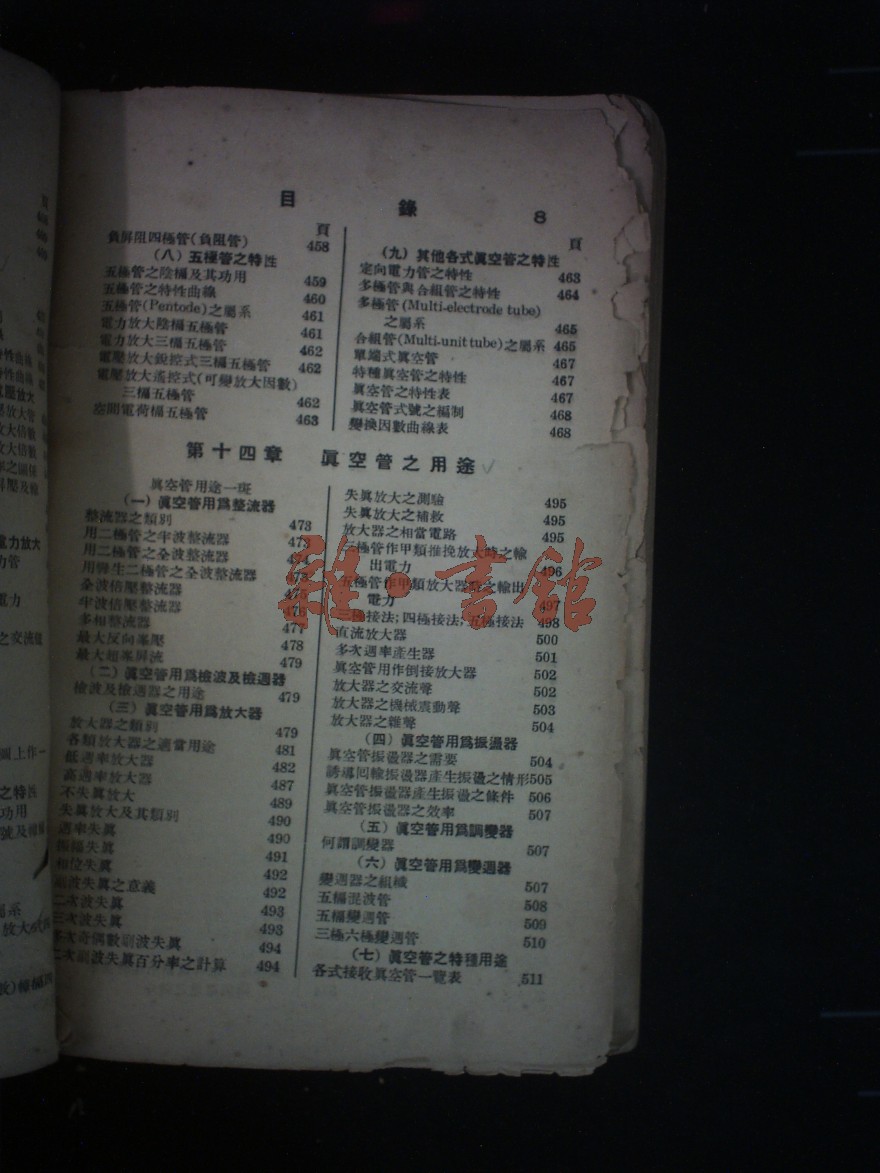 目錄 8
頁
負屏阻四極管(負阻管) 458
(八) 五極管之特性
五極管之陰柵及其功用 459
五極管之特性曲線 460
五極管(Pentode)之屬系 461
電力放大陰柵五極管 461
電力放大三柵五極管 462
電壓放大銳控式三柵五極管 462
電壓放大遙控式(可變放大因數)
三柵五極管 462
空間電荷柵五極管 463
頁
(九) 其他各式眞空管之特性
定向電力管之特性 463
多極管與合組管之特性 464
多極管(Multi-electrode tube)
之屬系 465
合組管(Multi-unit tube)之屬系 465
單端式眞空管 467
特種眞空管之特性 467
眞空管之特性表 467
眞空管式號之編制 468
變換因數曲線表 468
第十四章 眞空管之用途
眞空管用途一斑
(一) 眞空管用爲整流器
整流器之類別 473
用二極管之半波整流器 473
用二極管之全波整流器 474
用孿生二極管之全波整流器 475
全波倍壓整流器 475
半波倍壓整流器 476
多相整流器 477
最大反向峯壓 478
最大超峯屏流 479
(二) 眞空管用爲檢波及檢週器
檢波及檢週器之用途 479
(三) 眞空管用爲放大器
放大器之類別 479
各類放大器之適當用途 481
低週率放大器 482
高週率放大器 487
不失眞放大 489
失眞放大及其類別 490
週率失眞 490
振幅失眞 491
相位失眞 492
副波失眞之意義 492
二次波失眞 493
三次波失眞 493
多次奇偶數副波失眞 494
二次副波失眞百分率之計算 494
失眞放大之測驗 495
失眞放大之補救 495
放大器之相當電路 495
三極管作甲類推挽放大時之輸
出電力 496
五極管作甲類放大器時之輸出
電力 497
三極接法;四極接法;五極接法 498
直流放大器 500
多次週率產生器 501
眞空管用作倒接放大器 502
放大器之交流聲 502
放大器之機械震動聲 503
放大器之雜聲 504
(四) 眞空管用爲振盪器
眞空管振盪器之需要 504
誘導回輸振盪器產生振盪之情形 505
眞空管振盪器產生振盪之條件 506
眞空管振盪器之效率 507
(五) 眞空管用爲調變器
何謂調變器 507
(六) 眞空管用爲變週器
變週器之組織 507
五柵混波管 508
五柵變週管 509
三極六極變週管 510
(七) 眞空管之特種用途
各式接收眞空管一覽表 511
雜·書館